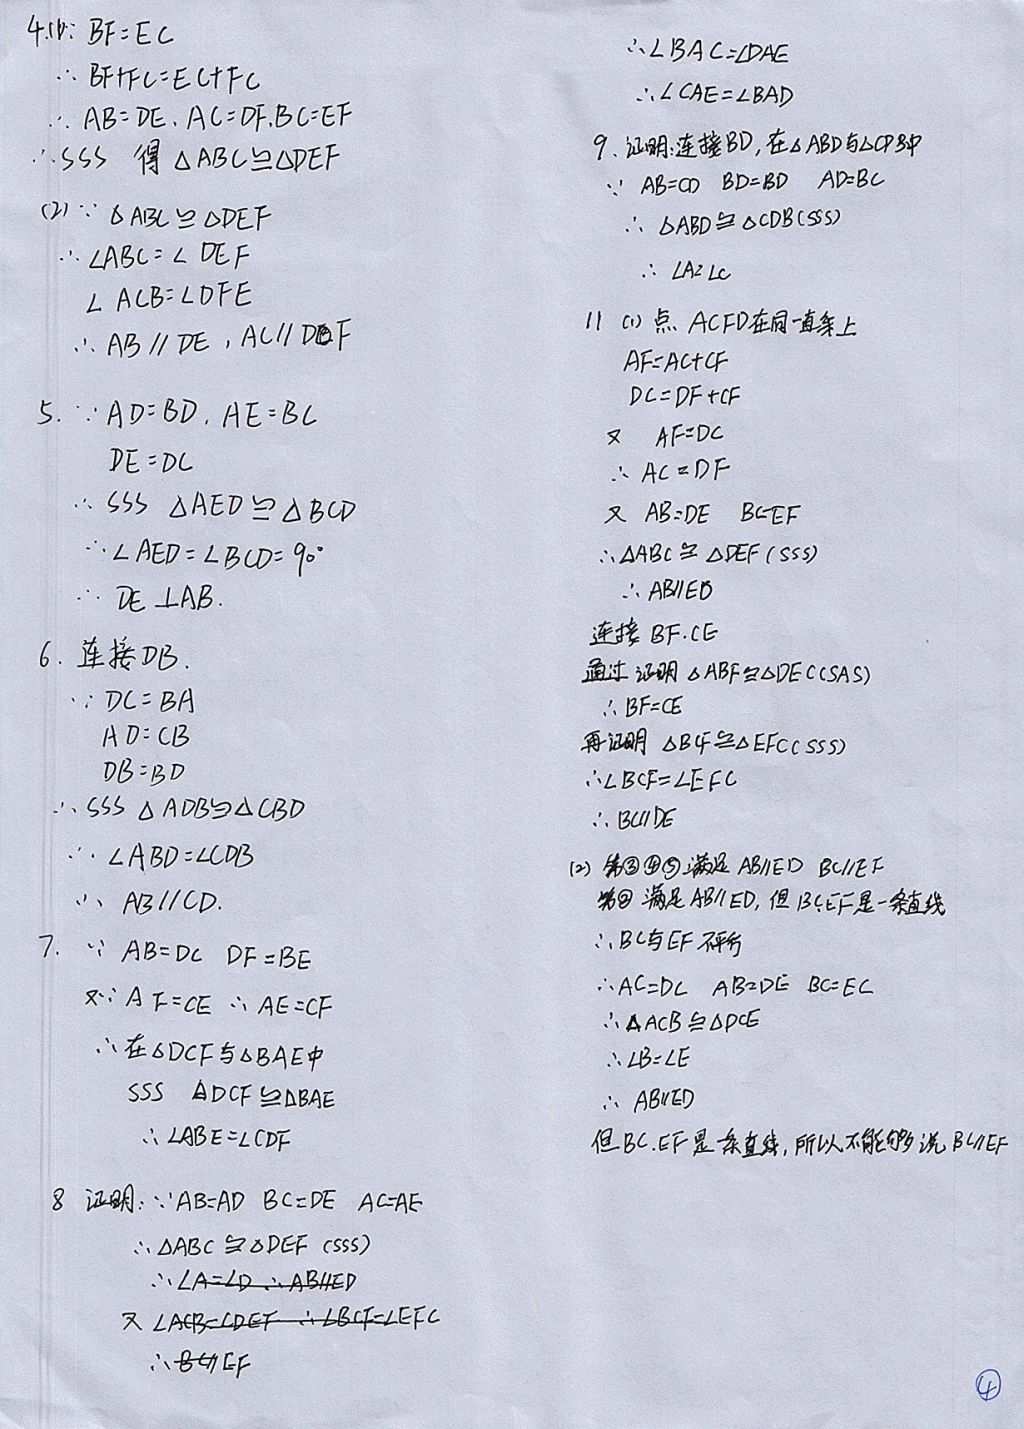 4.(1)∵ BF=EC
∴ BF+FC=EC+FC
∴ AB=DE、AC=DF、BC=EF
∴SSS 得 △ABC≌△DEF
(2) ∵ △ABC≌△DEF
∴ ∠ABC=∠DEF
∠ACB=∠DFE
∴ AB//DE,AC//DF
5. ∵ AD=BD、AE=BC
DE=DC
∴ SSS △AED≌△BCD
∴∠AED=∠BCD=90°
∴ DE⊥AB.
6. 连接DB.
∵ DC=BA
AD=CB
DB=BD
∴ SSS △ADB≌△CBD
∴ ∠ABD=∠CDB
∴ AB//CD.
7. ∵ AB=DC DF=BE
又∵ AF=CE ∴ AE=CF
∴在△DCF与△BAE中
SSS △DCF≌△BAE
∴∠ABE=∠CDF
8 证明:∵AB=AD BC=DE AC=AE
∴△ABC≌△DEF (SSS)
∴∠A=∠D ∴AB//ED
又 ∠ACB=∠DEF ∴∠BCF=∠EFC
∴BC//EF
∴∠BAC=∠DAE
∴∠CAE=∠BAD
9、证明:连接BD,在△ABD与△CDB中
∵ AB=CD BD=BD AD=BC
∴ △ABD≌△CDB(SSS)
∴ ∠A=∠C
11 (1) 点 ACFD在同一直条上
AF=AC+CF
DC=DF+CF
又 AF=DC
∴ AC=DF
又 AB=DE BC=EF
∴△ABC≌△DEF(SSS)
∴AB//ED
连接 BF.CE
通过 证明△ABF≌△DEC(SAS)
∴BF=CE
再证明 △BCF≌△EFC(SSS)
∴∠BCF=∠EFC
∴ BC//DE
(2) 第③④⑤满足 AB//ED BC//EF
第② 满足AB//ED,但BC、EF是一条直线
∴BC与EF不平行
∴AC=DC AB=DE BC=EC
∴△ACB≌△DCE
∴∠B=∠E
∴ AB//ED
但BC.EF是一条直线,所以不能够说BC//EF
④